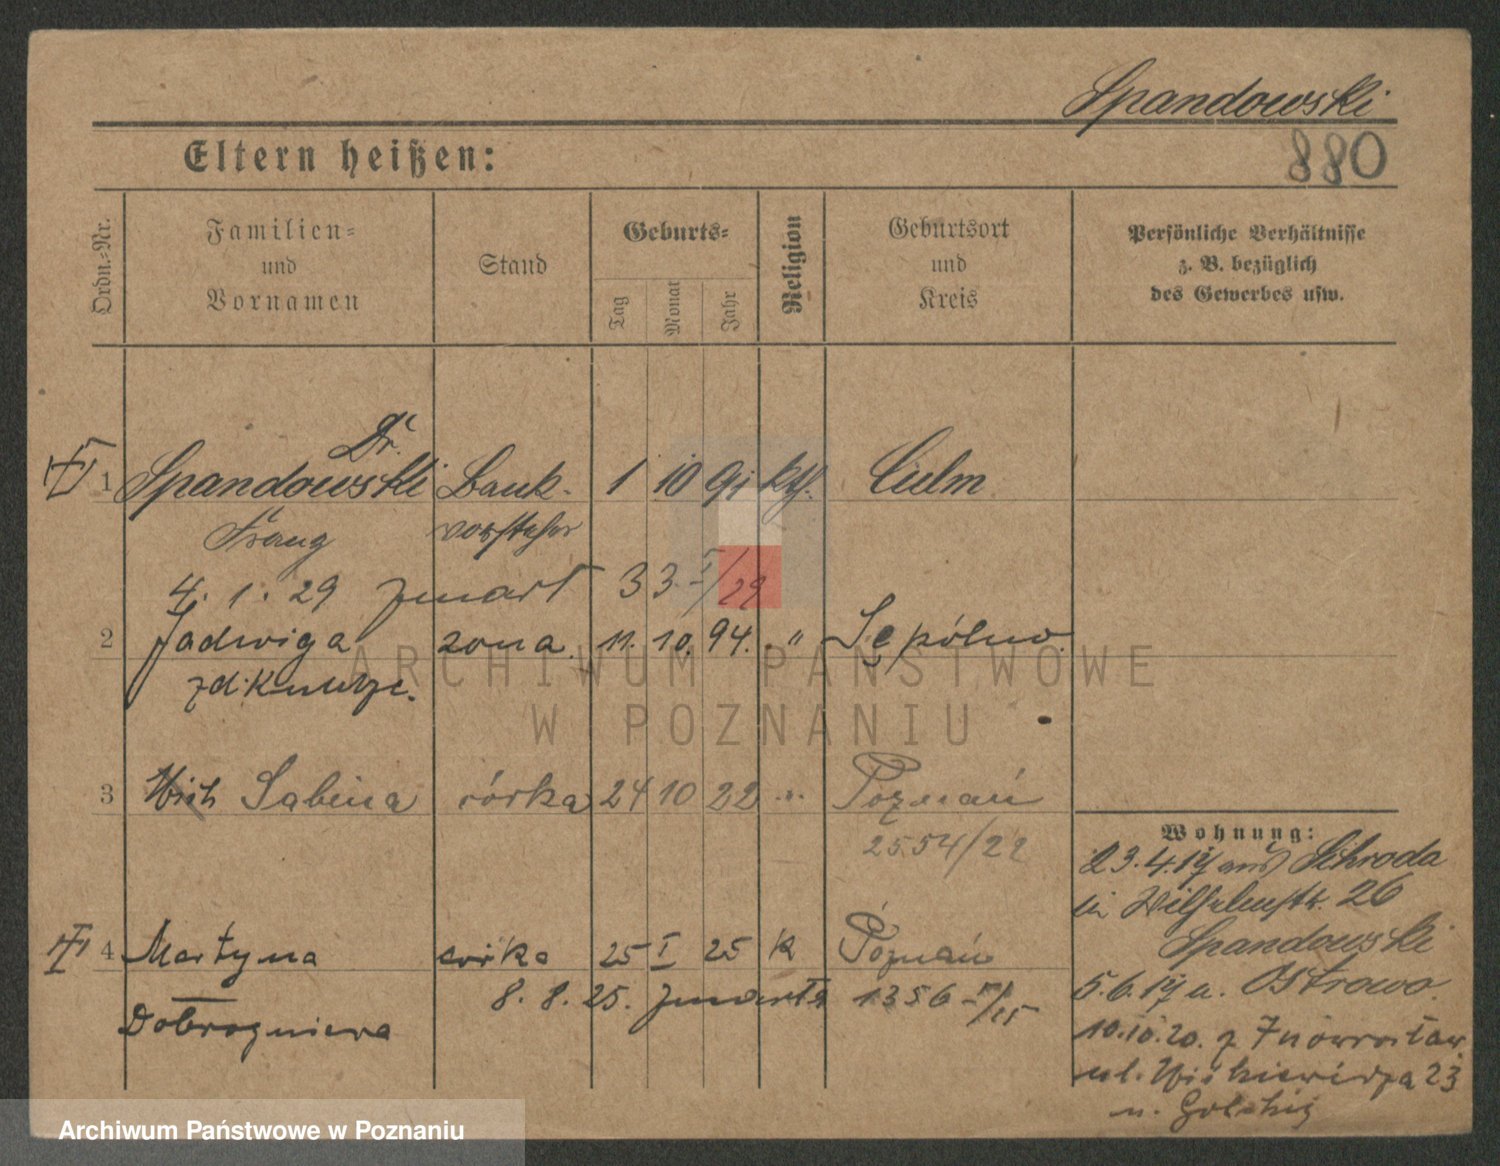 Spandowski
Eltern heißen:
880
Ordn.-Nr.
Familien-
und
Vornamen
Stand
Geburts-
Tag
Monat
Jahr
Religion
Geburtsort
und
Kreis
Persönliche Verhältnisse
z. B. bezüglich
des Gewerbes usw.
Dr.
1 Spandowski Bank- 1 10 91 kth. Culm
Franz vorsteher
4. 1. 29 zmarł 33 I/29
2 Jadwiga żona 11. 10. 94. " Sępólno
zd:
3 Sabina córka 24 10 22 " Poznań
2554/22
4 Martyna córka 25 I 25 k Poznań
8. 8. 25. zmarła 1356
Dobrogniewa
Wohnung:
23.4.19 aus Schroda
in Wilhelmstr. 26
Spandowski
5.6.19 a. Ostrowo.
10.10.20. z Inowrocław
ul. 23
u.
ARCHIWUM PAŃSTWOWE
W POZNANIU
Archiwum Państwowe w Poznaniu